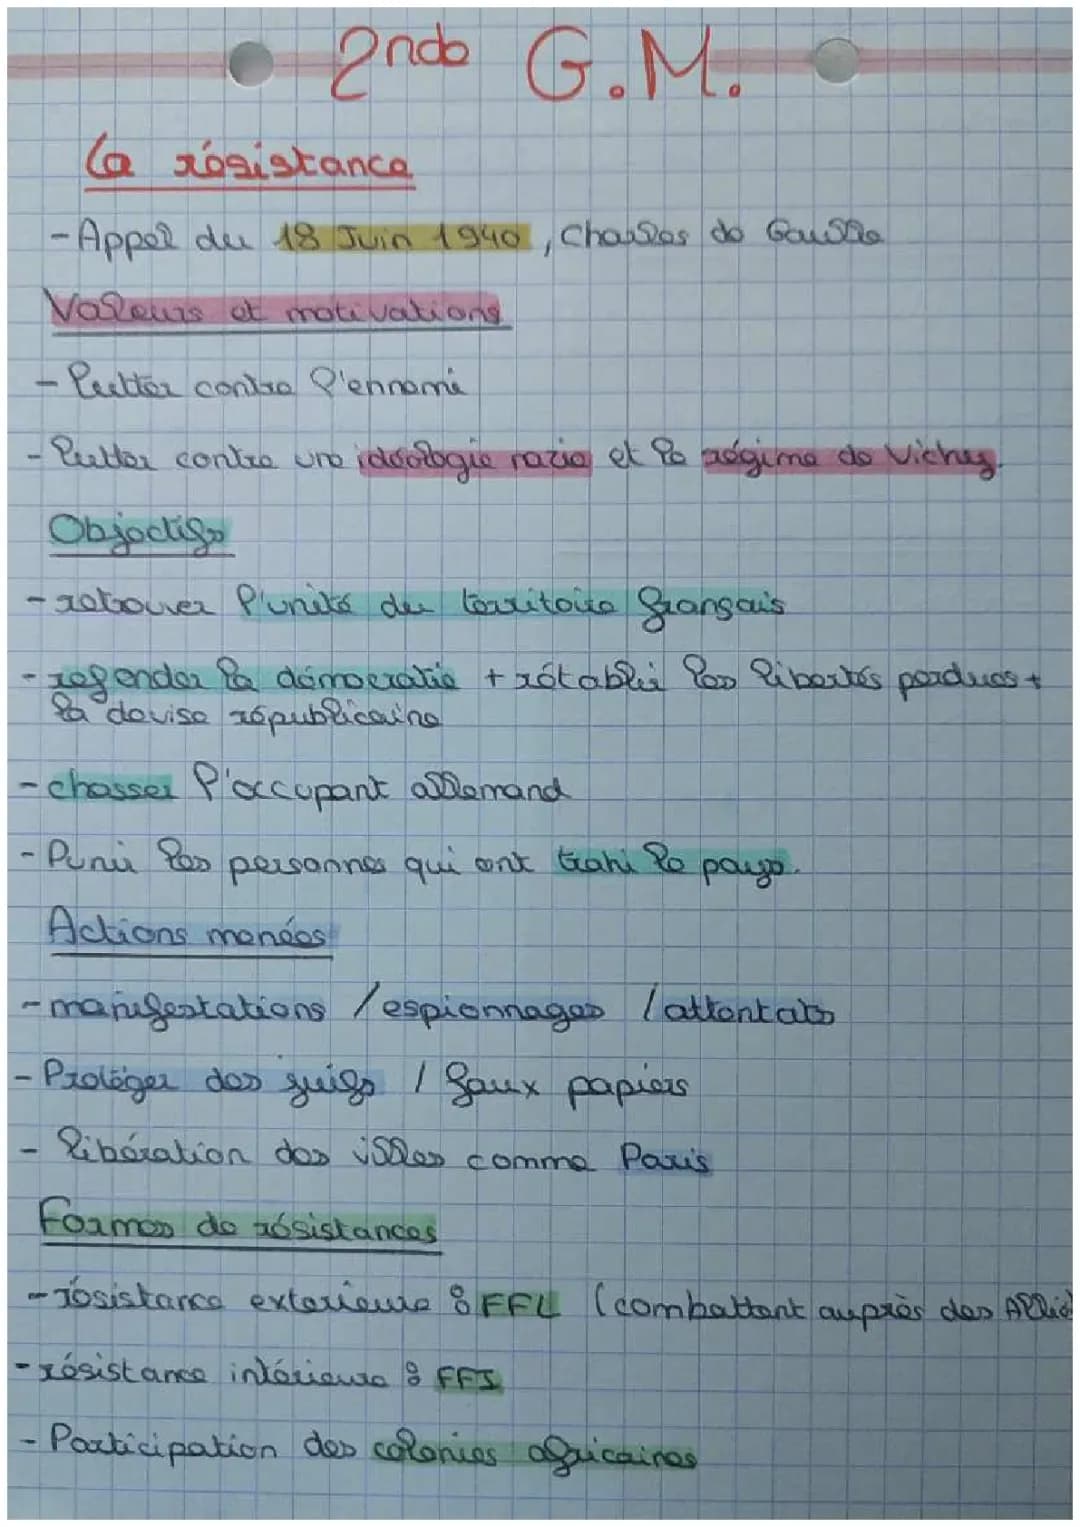 2nde G.M.
La résistance
- Appel du 18 Juin 1940, Charles de Gaulle
Valeurs et motivations
- lutter contre l'ennemi
- lutter contre une idéologie nazie et le régime de Vichy.
Objectifs
- retrouver l'unité du territoire français
- refonder la démocratie + rétablir les libertés perdues +
la devise républicaine
- chasser l'occupant allemand
- Punir les personnes qui ont trahi le pays.
Actions menées
- manifestations / espionnages / attentats
- Protéger des juifs / faux papiers
- libération des villes comme Paris
Formes de résistances
- résistance exterieure : FFL (combattent auprès des Allié
- résistance intérieure : FFI
- Participation des colonies africaines